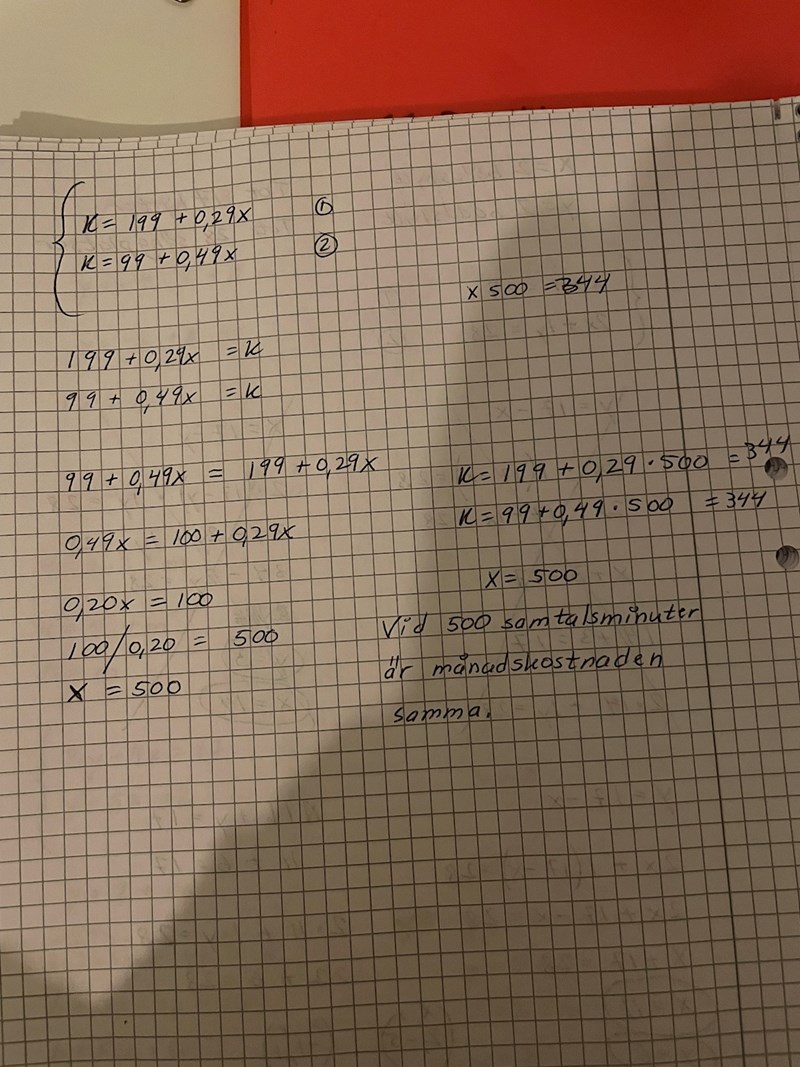 K = 199 + 0,29x ①
K = 99 + 0,49x ②
199 + 0,29x = K
99 + 0,49x = K
99 + 0,49x = 199 + 0,29x
0,49x = 100 + 0,29x
0,20x = 100
100/0,20 = 500
x = 500
x 500 = 344
K = 199 + 0,29 · 500 = 344
K = 99 + 0,49 · 500 = 344
x = 500
Vid 500 samtalsminuter
är månadskostnaden
samma.